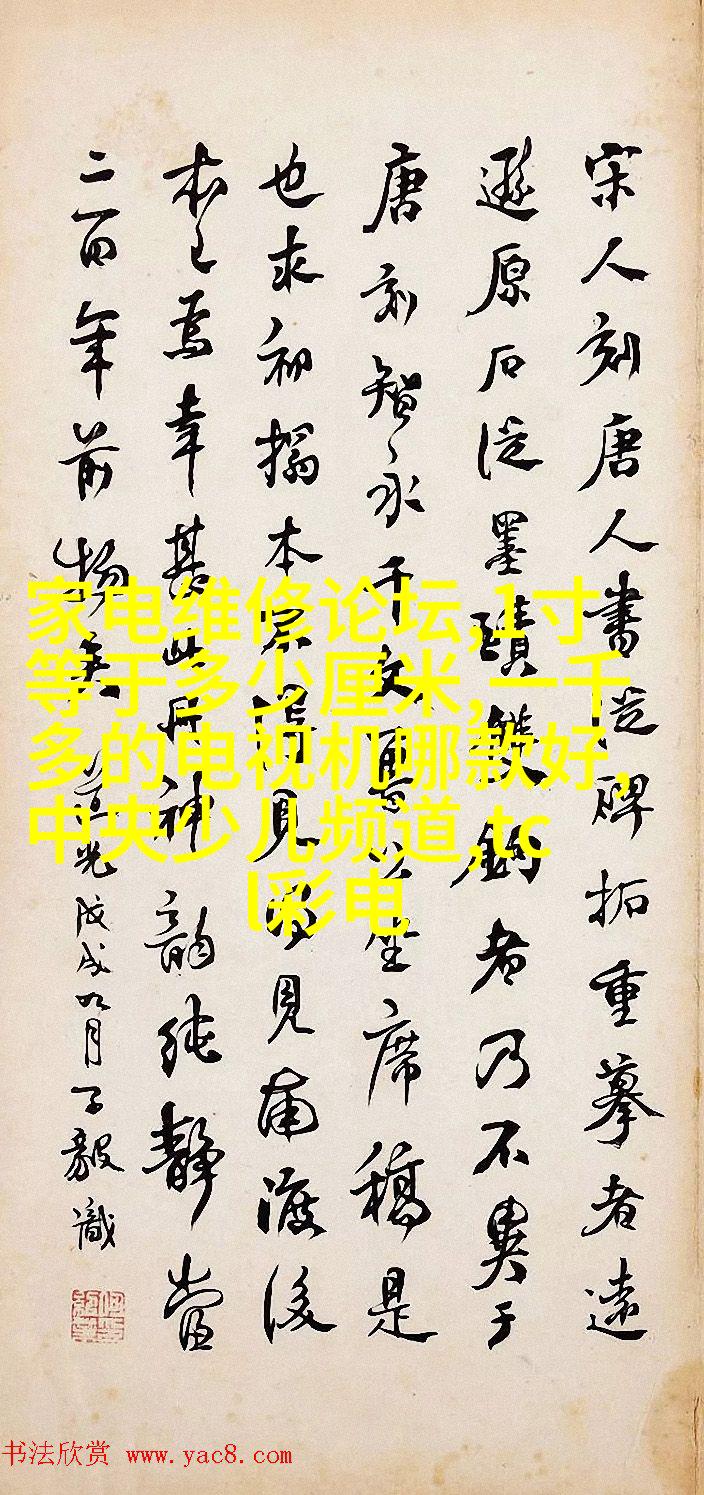 宋人刻唐人書從碑拓重摹者遠
遜原石從墨蹟雙鉤者乃不異于
唐刻智永千文坐席稿是
也求初搨本得見見南渡後
本已焉幸甚此神韻純靜當
二百年前矣道光戊戌九月子毅識
家电维修论坛,1寸
等于多少厘米,一千
多的电视机哪款好,
中央少儿频道,tc
l彩电
书法欣赏 www.yac8.com